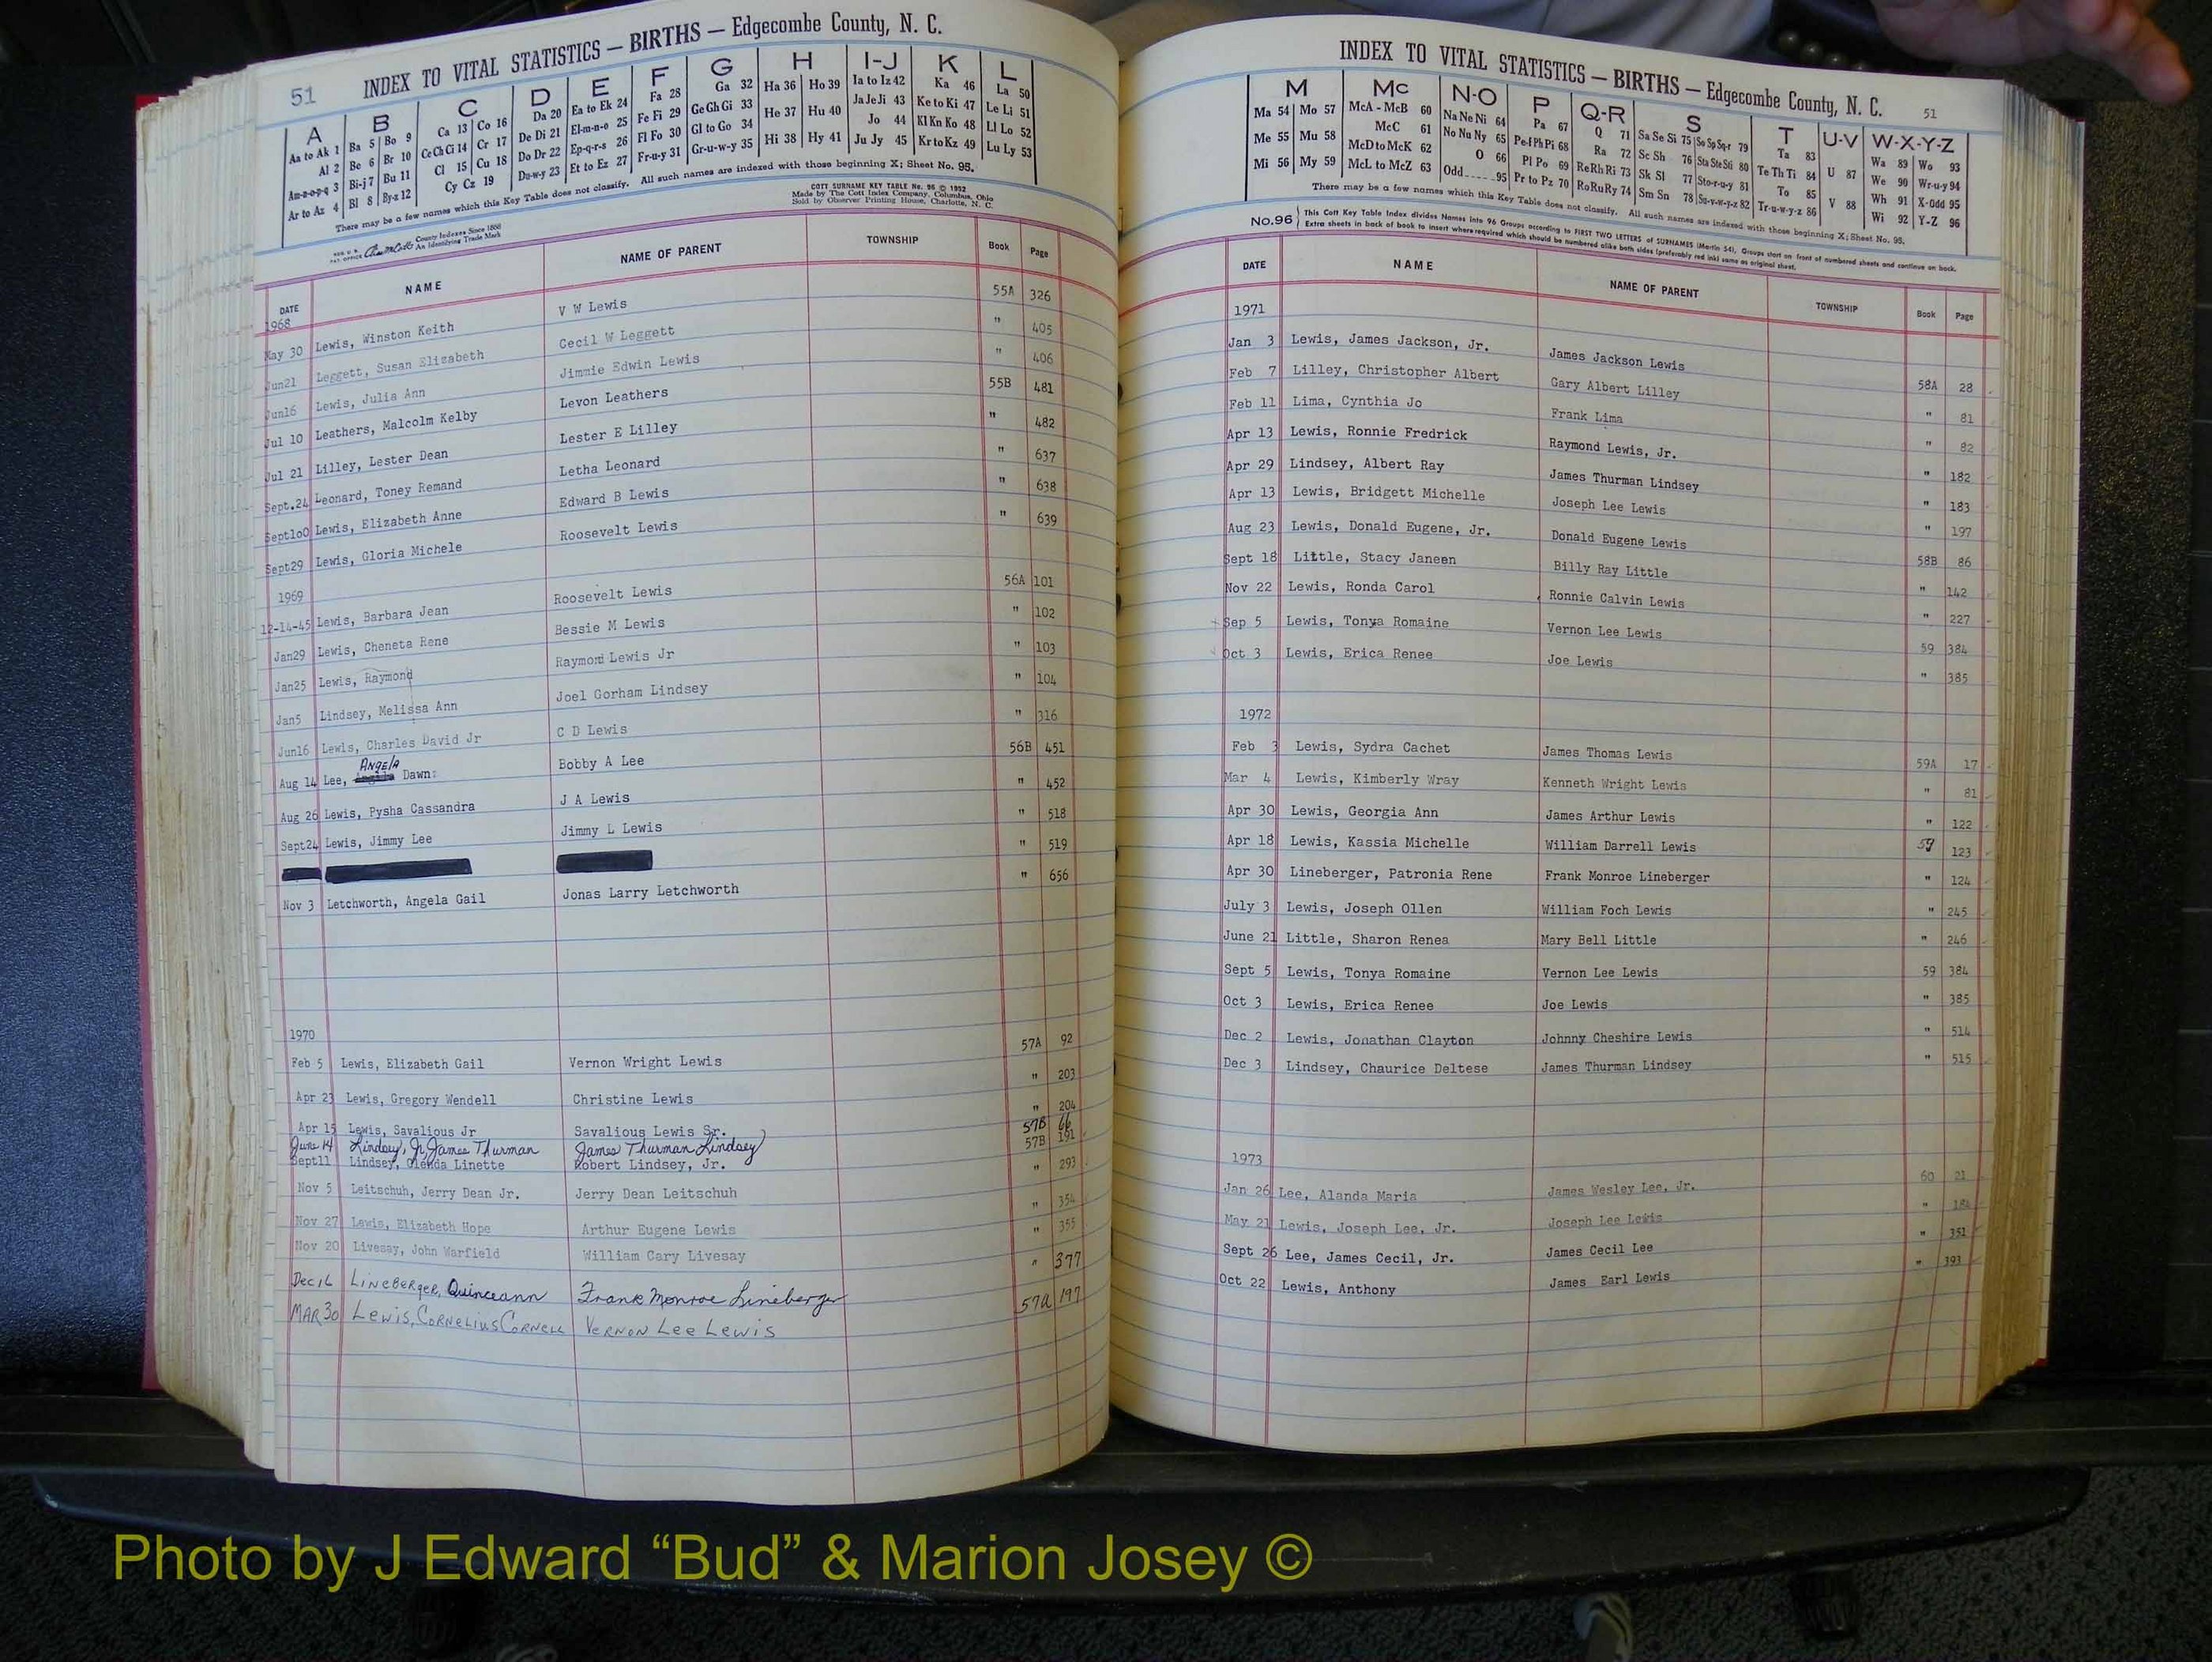 51 INDEX TO VITAL STATISTICS — BIRTHS — Edgecombe County, N. C.
A B C D E F G H I-J K L
Aa to Ak 1 Ba 5 Bo 9 Ca 13 Co 16 Da 20 Ea to Ek 24 Fa 28 Ga 32 Ha 36 Ho 39 Ia to Iz 42 Ka 46 La 50
Al 2 Be 6 Br 10 Ce Ch Ci 14 Cr 17 De Di 21 El-m-n-o 25 Fe Fi 29 Ge Gh Gi 33 He 37 Hu 40 Ja Je Ji 43 Ke to Ki 47 Le Li 51
Am-n-o-p-q 3 Bi-j 7 Bu 11 Cl 15 Cu 18 Do Dr 22 Ep-q-r-s 26 Fl Fo 30 Gl to Go 34 Hi 38 Hy 41 Jo 44 Kl Kn Ko 48 Ll Lo 52
Ar to Az 4 Bl 8 By-z 12 Cy Cz 19 Du-w-y 23 Et to Ez 27 Fr-u-y 31 Gr-u-w-y 35 Ju Jy 45 Kr to Kz 49 Lu Ly 53
There may be a few names which this Key Table does not classify. All such names are indexed with those beginning X; Sheet No. 95.
COTT SURNAME KEY TABLE No. 96 © 1952
Made by The Cott Index Company, Columbus, Ohio
Sold by Observer Printing House, Charlotte, N. C.
County Indexes Since 1888
An Identifying Trade Mark
DATE NAME NAME OF PARENT TOWNSHIP Book Page
1968
May 30 Lewis, Winston Keith V W Lewis 55A 326
Jun21 Leggett, Susan Elizabeth Cecil W Leggett " 405
Jun16 Lewis, Julia Ann Jimmie Edwin Lewis " 406
Jul 10 Leathers, Malcolm Kelby Levon Leathers 55B 481
Jul 21 Lilley, Lester Dean Lester E Lilley " 482
Sept.24 Leonard, Toney Remand Letha Leonard " 637
Sept10 Lewis, Elizabeth Anne Edward B Lewis " 638
Sept29 Lewis, Gloria Michele Roosevelt Lewis " 639
1969
12-14-45 Lewis, Barbara Jean Roosevelt Lewis 56A 101
Jan29 Lewis, Cheneta Rene Bessie M Lewis " 102
Jan25 Lewis, Raymond Raymond Lewis Jr " 103
Jan5 Lindsey, Melissa Ann Joel Gorham Lindsey " 104
Jun16 Lewis, Charles David Jr C D Lewis " 316
Aug 14 Lee, Angela Dawn Bobby A Lee 56B 451
Aug 26 Lewis, Pysha Cassandra J A Lewis " 452
Sept24 Lewis, Jimmy Lee Jimmy L Lewis " 518
" 519
Nov 3 Letchworth, Angela Gail Jonas Larry Letchworth " 656
1970
Feb 5 Lewis, Elizabeth Gail Vernon Wright Lewis 57A 92
Apr 23 Lewis, Gregory Wendell Christine Lewis " 203
Apr 15 Lewis, Savalious Jr Savalious Lewis Sr. " 204
June 14 Lindsey, Jr, James Thurman James Thurman Lindsey 57B 66
Sept11 Lindsey, Glenda Linette Robert Lindsey, Jr. 57B 191
Nov 5 Leitschuh, Jerry Dean Jr. Jerry Dean Leitschuh " 293
Nov 27 Lewis, Elizabeth Hope Arthur Eugene Lewis " 354
Nov 20 Livesay, John Warfield William Cary Livesay " 355
Dec 16 Lineberger, Quinceann Frank Monroe Lineberger " 377
MAR 30 Lewis, Cornelius Cornell Vernon Lee Lewis 57A 197
INDEX TO VITAL STATISTICS — BIRTHS — Edgecombe County, N. C. 51
M Mc N-O P Q-R S T U-V W-X-Y-Z
Ma 54 Mo 57 McA - McB 60 Na Ne Ni 64 Pa 67 Q 71 Sa Se Si 75 So Sp Sq-r 79 Ta 83 U 87 Wa 89 Wo 93
Me 55 Mu 58 McC 61 No Nu Ny 65 Pe-f Ph Pi 68 Ra 72 Sc Sh 76 Sta Ste Sti 80 Te Th Ti 84 We 90 Wr-u-y 94
Mi 56 My 59 McD to McK 62 O 66 Pl Po 69 Re Rh Ri 73 Sk Sl 77 Sto-r-u-y 81 To 85 V 88 Wh 91 X-Odd 95
McL to McZ 63 Odd 95 Pr to Pz 70 Ro Ru Ry 74 Sm Sn 78 Su-v-w-y-z 82 Tr-u-w-y-z 86 Wi 92 Y-Z 96
There may be a few names which this Key Table does not classify. All such names are indexed with those beginning X; Sheet No. 95.
No.96 This Cott Key Table Index divides Names into 96 Groups according to FIRST TWO LETTERS of SURNAMES (Martin 54). Groups start on front of numbered sheets and continue on back.
Extra sheets in back of book to insert where required which should be numbered alike both sides (preferably red ink) same as original sheet.
DATE NAME NAME OF PARENT TOWNSHIP Book Page
1971
Jan 3 Lewis, James Jackson, Jr. James Jackson Lewis 58A 28
Feb 7 Lilley, Christopher Albert Gary Albert Lilley " 81
Feb 11 Lima, Cynthia Jo Frank Lima " 82
Apr 13 Lewis, Ronnie Fredrick Raymond Lewis, Jr. " 182
Apr 29 Lindsey, Albert Ray James Thurman Lindsey " 183
Apr 13 Lewis, Bridgett Michelle Joseph Lee Lewis " 197
Aug 23 Lewis, Donald Eugene, Jr. Donald Eugene Lewis 58B 86
Sept 18 Little, Stacy Janeen Billy Ray Little " 142
Nov 22 Lewis, Ronda Carol Ronnie Calvin Lewis " 227
Sep 5 Lewis, Tonya Romaine Vernon Lee Lewis 59 384
Oct 3 Lewis, Erica Renee Joe Lewis " 385
1972
Feb 3 Lewis, Sydra Cachet James Thomas Lewis 59A 17
Mar 4 Lewis, Kimberly Wray Kenneth Wright Lewis " 81
Apr 30 Lewis, Georgia Ann James Arthur Lewis " 122
Apr 18 Lewis, Kassia Michelle William Darrell Lewis 59 123
Apr 30 Lineberger, Patronia Rene Frank Monroe Lineberger " 124
July 3 Lewis, Joseph Ollen William Foch Lewis " 245
June 21 Little, Sharon Renea Mary Bell Little " 246
Sept 5 Lewis, Tonya Romaine Vernon Lee Lewis 59 384
Oct 3 Lewis, Erica Renee Joe Lewis " 385
Dec 2 Lewis, Jonathan Clayton Johnny Cheshire Lewis " 514
Dec 3 Lindsey, Chaurice Deltese James Thurman Lindsey " 515
1973
Jan 26 Lee, Alanda Maria James Wesley Lee, Jr. 60 21
May 21 Lewis, Joseph Lee, Jr. Joseph Lee Lewis " 184
Sept 26 Lee, James Cecil, Jr. James Cecil Lee " 351
Oct 22 Lewis, Anthony James Earl Lewis " 393
Photo by J Edward “Bud” & Marion Josey ©